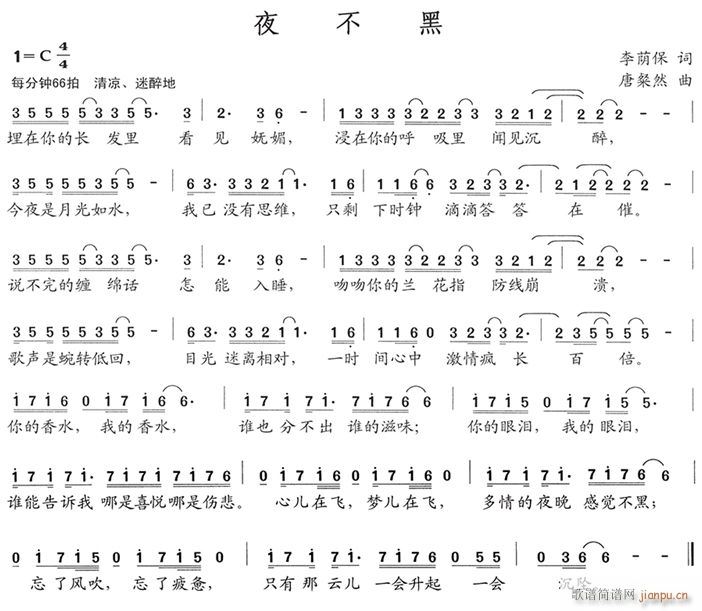 夜 不 黑
1=C 4/4
李荫保 词
每分钟66拍 清凉、迷醉地
唐粲然 曲
3 5 5 5 5 3 3 5 5· 3 2· 3 6 - 1 3 3 3 3 2 3 3 3 2 1 2 2 2 2 -
埋在你的长 发里 看 见 妩媚, 浸在你的呼 吸里 闻见沉 醉,
3 5 5 5 5 5 3 5 5 - 6 3· 3 3 2 1 1· 1 6 1 1 6 6 3 2 3 3 2· 2 1 2 2 2 2 -
今夜是月光如水, 我已 没有思维, 只剩 下时钟 滴滴答答 答 在 催。
3 5 5 5 5 3 3 5 5· 3 2· 3 6 - 1 3 3 3 3 2 3 3 3 2 1 2 2 2 2 -
说不完的缠 绵话 怎 能 入睡, 吻吻你的兰 花指 防线崩 溃,
3 5 5 5 5 5 3 5 5 - 6 3· 3 3 2 1 1· 1 6 1 1 6 0 3 2 3 3 2· 2 3 5 5 5 5 -
歌声是婉转低回, 目光 迷离相对, 一时 间心中 激情疯 长 百 倍。
1 7 1 6 0 1 7 1 6 6· 0 1 7 1 5 7 1 7 6 6 1 7 1 5 0 1 7 1 5·
你的香水, 我的香水, 谁也 分不出 谁的滋味; 你的眼泪, 我的眼泪,
1 7 1 7 1· 7 1 7 1 7 1 7 6 0 1 7 1 6 1 7 1 6 0 1 7 1 7 1· 7 1 7 6 6
谁能告诉我 哪是喜悦哪是伤悲。 心儿在飞, 梦儿在飞, 多情的夜晚 感觉不黑;
0 1 7 1 5 1 7 1 5 0 0 1 7 1 7 1· 7 1 7 6 6 0 0 3 6 6 -
忘了风吹, 忘了疲惫, 只有那 云儿 一会升起 一会 沉坠
歌谱简谱网
jianpu.cn